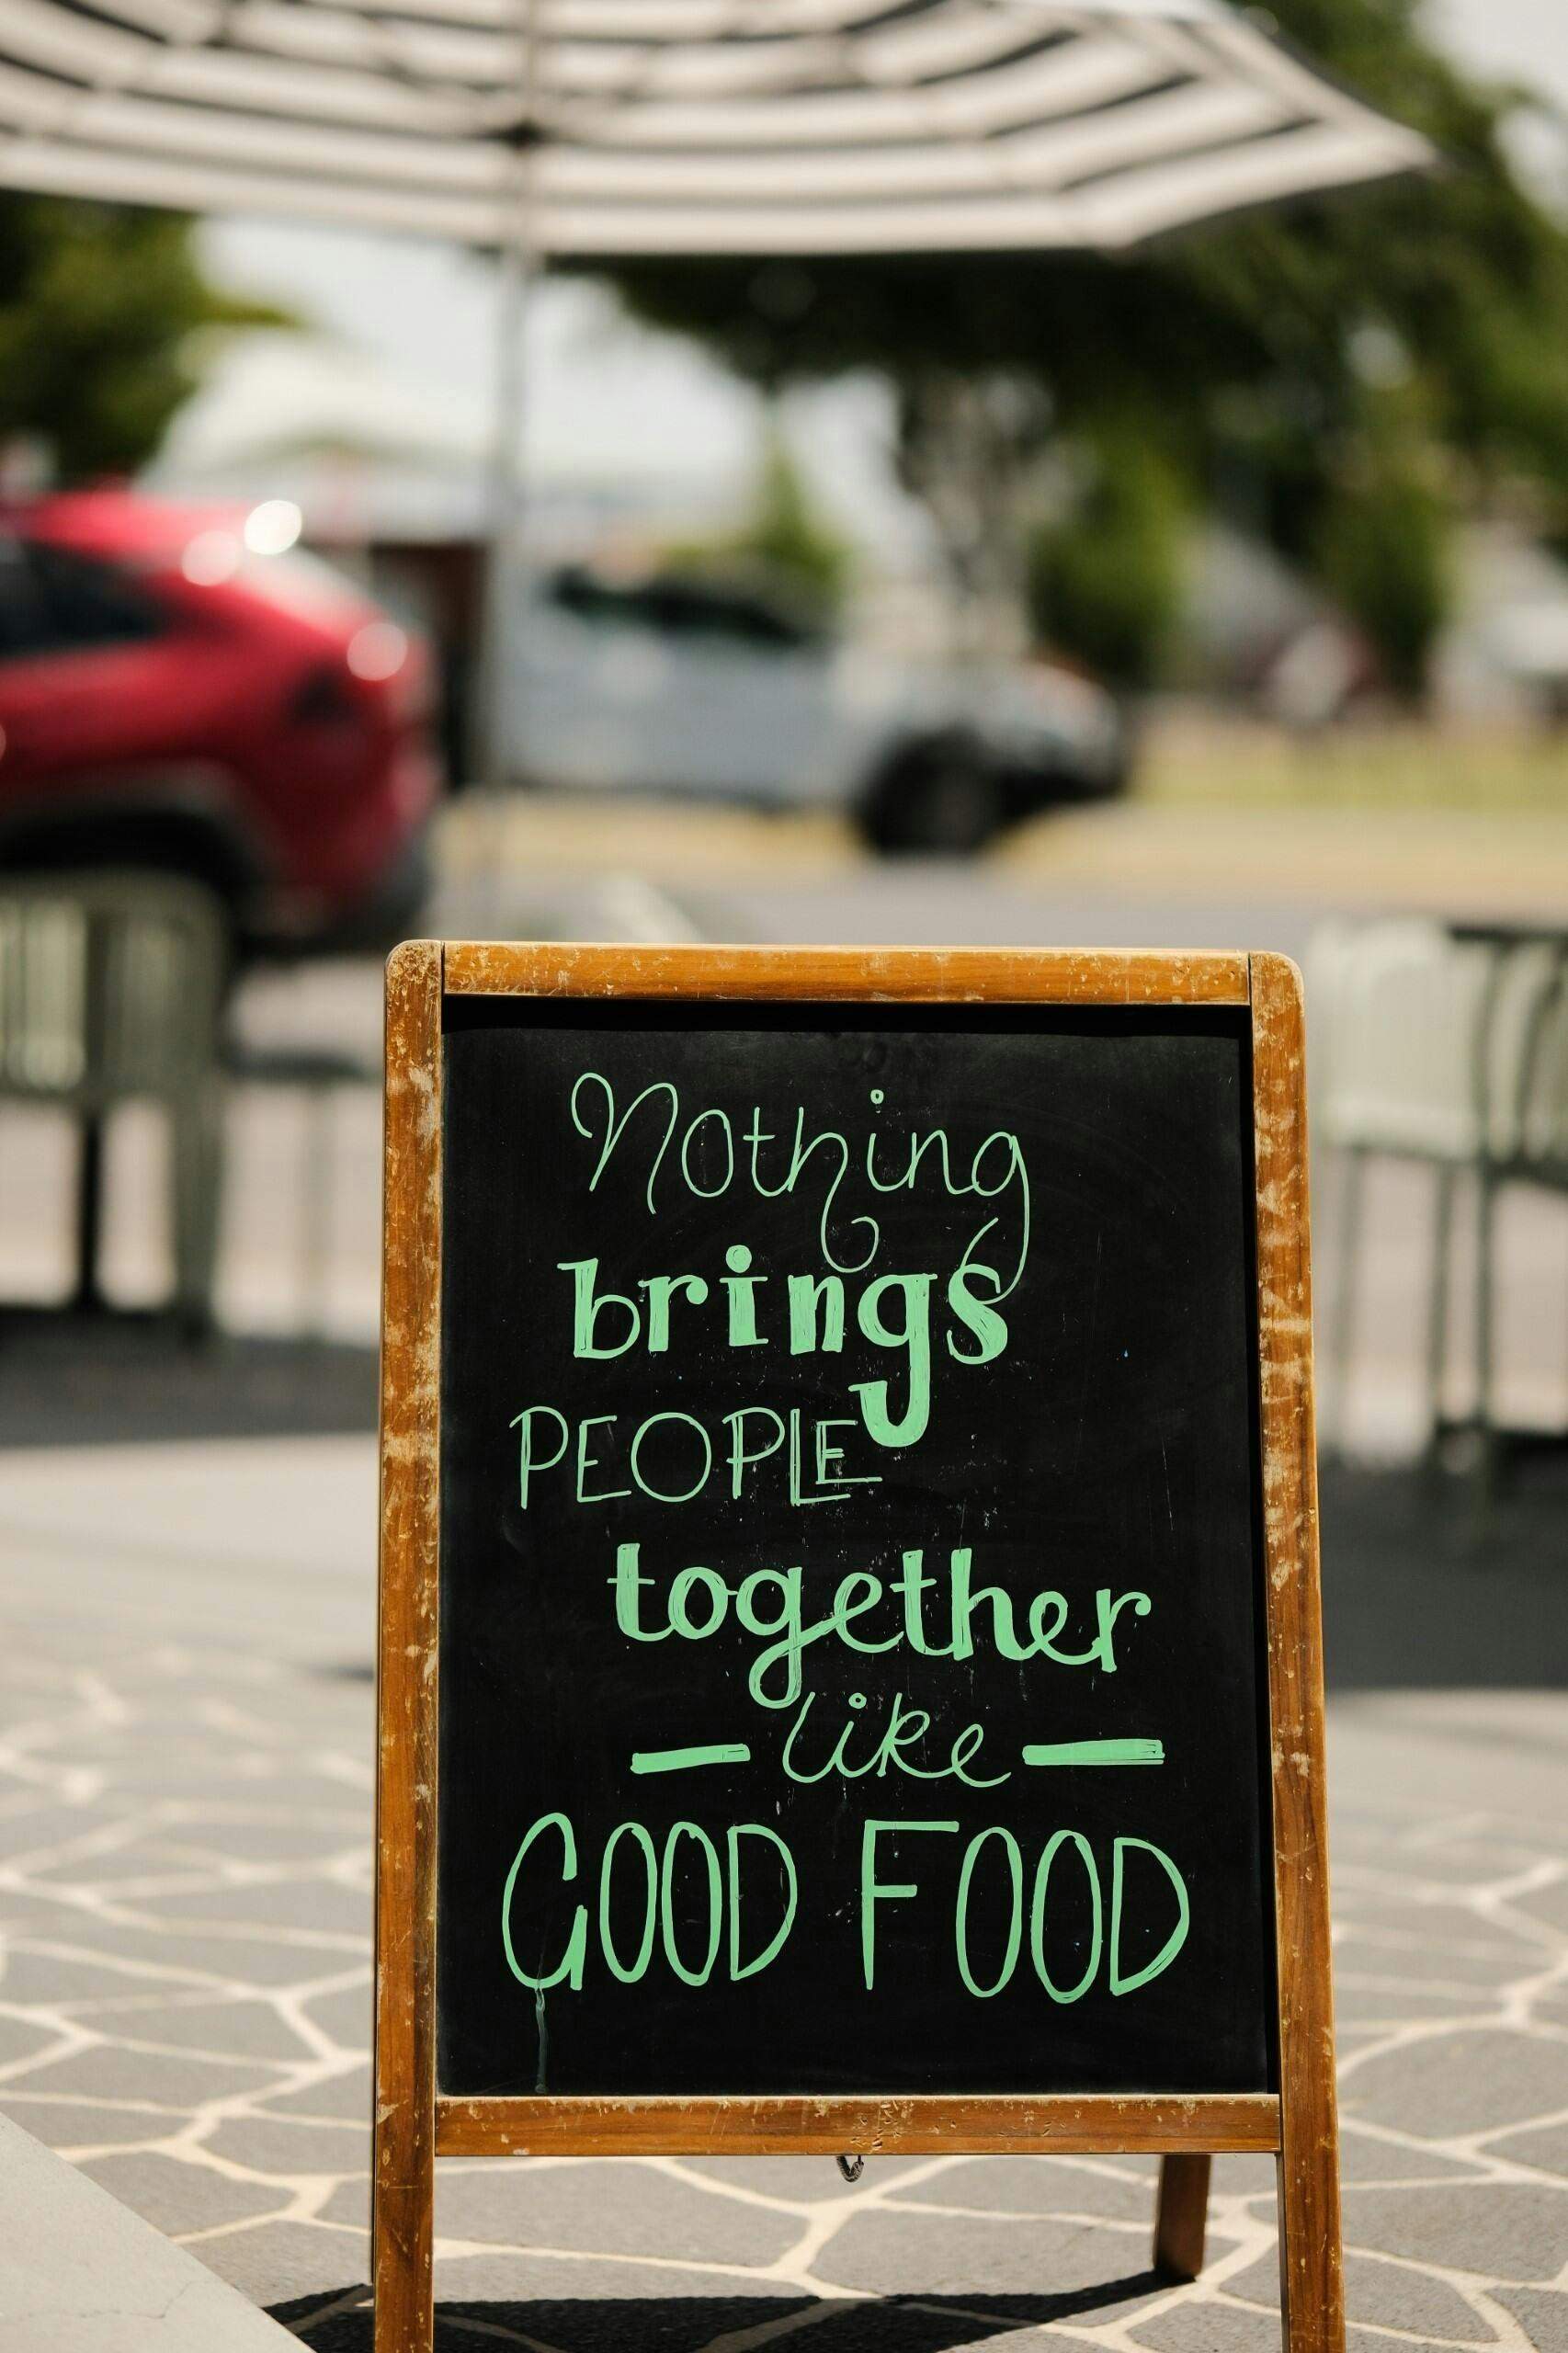 Nothing
brings
PEOPLE
together
— like —
GOOD FOOD